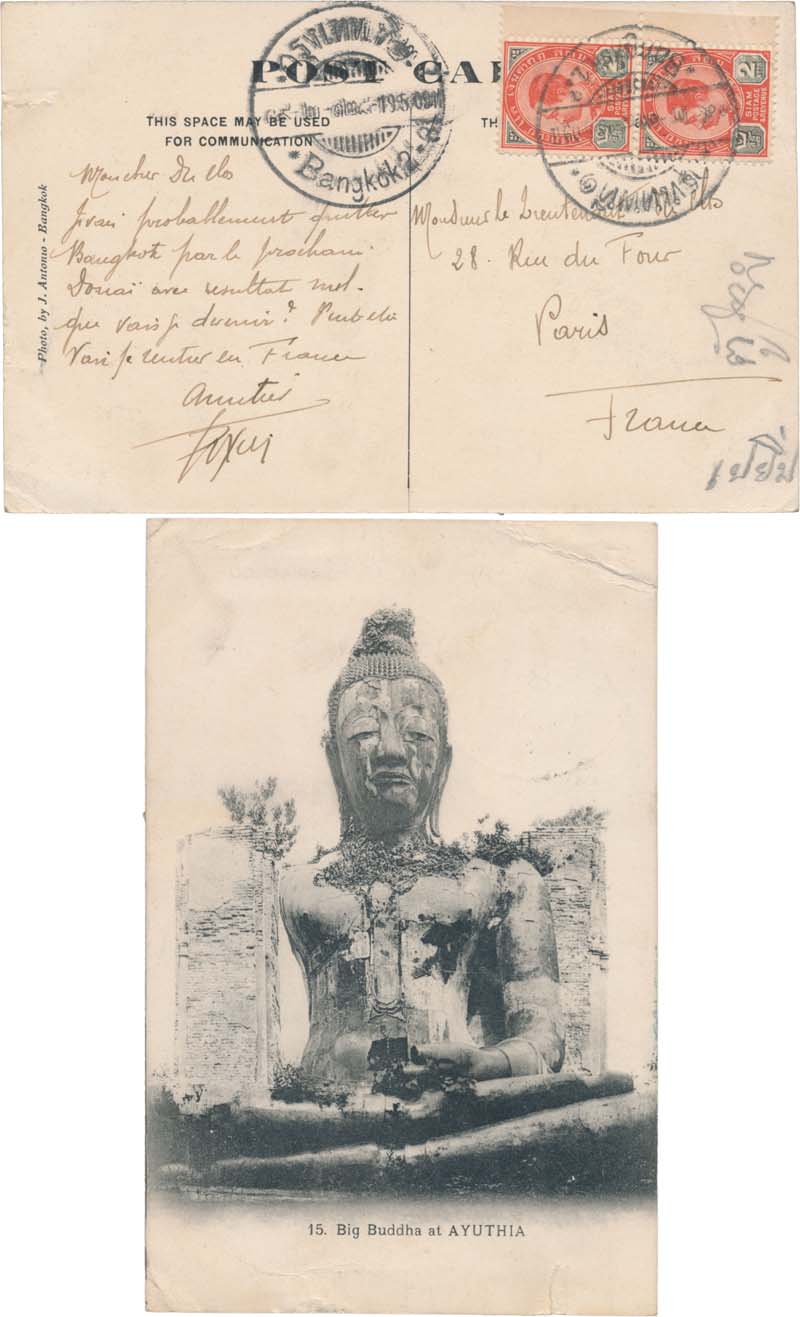 POST CAR
THIS SPACE MAY BE USED
FOR COMMUNICATION
TH
19.5.09
*Bangkok2*
SIAM
POSTAGE
&REVENUE
2
SIAM
POSTAGE
&REVENUE
2
Photo, by J. Antonio - Bangkok
Mon cher Du clos
J'vais probablement quitter
Bangkok par le prochain
Donaï avec resultat nul.
que vais je devenir? Peut etre
Vais je rentrer en France
Amitiés
Monsieur le Lieutenant Du Clos
28. Rue du Four
Paris
France
15. Big Buddha at AYUTHIA